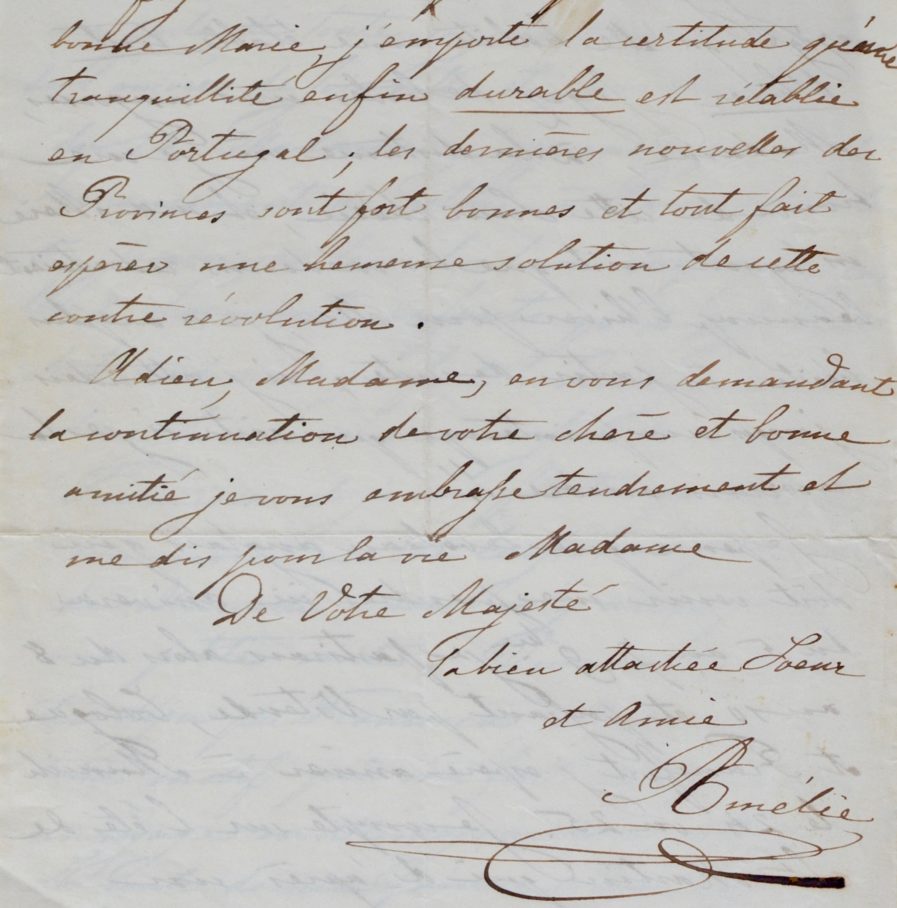 bonne Marie, j'emporte la certitude qu'une
tranquillité enfin durable est rétablie
en Portugal ; les dernières nouvelles des
Provinces sont fort bonnes et tout fait
espérer une heureuse solution de cette
contre révolution.
Adieu, Madame, en vous demandant
la continuation de votre chère et bonne
amitié je vous embrasse tendrement et
me dis pour la vie Madame
De Votre Majesté
la bien attachée Soeur
et Amie
Amélie